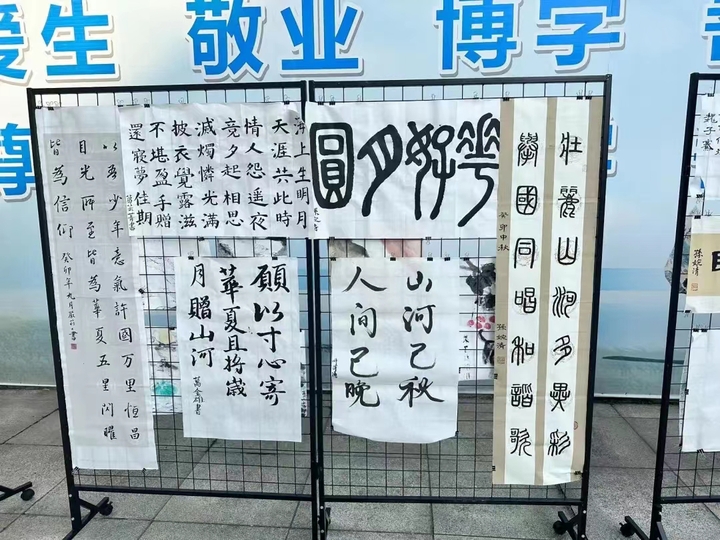 爱生 敬业 博学
以吾少年意气許国万里恒昌
目光所至皆為華夏五星闪耀
皆為信仰 癸卯年九月
海上生明月
天涯共此時
情人怨遥夜
竞夕起相思
滅燭憐光滿
披衣覺露滋
不堪盈手贈
還寢夢佳期
華好月圓
癸卯中秋
願以寸心寄
華夏且将歲
月贈山河
山河已秋
人间已晚
壯麗山河多異彩
舉國同唱和諧歌
孫婉清
孫婉清